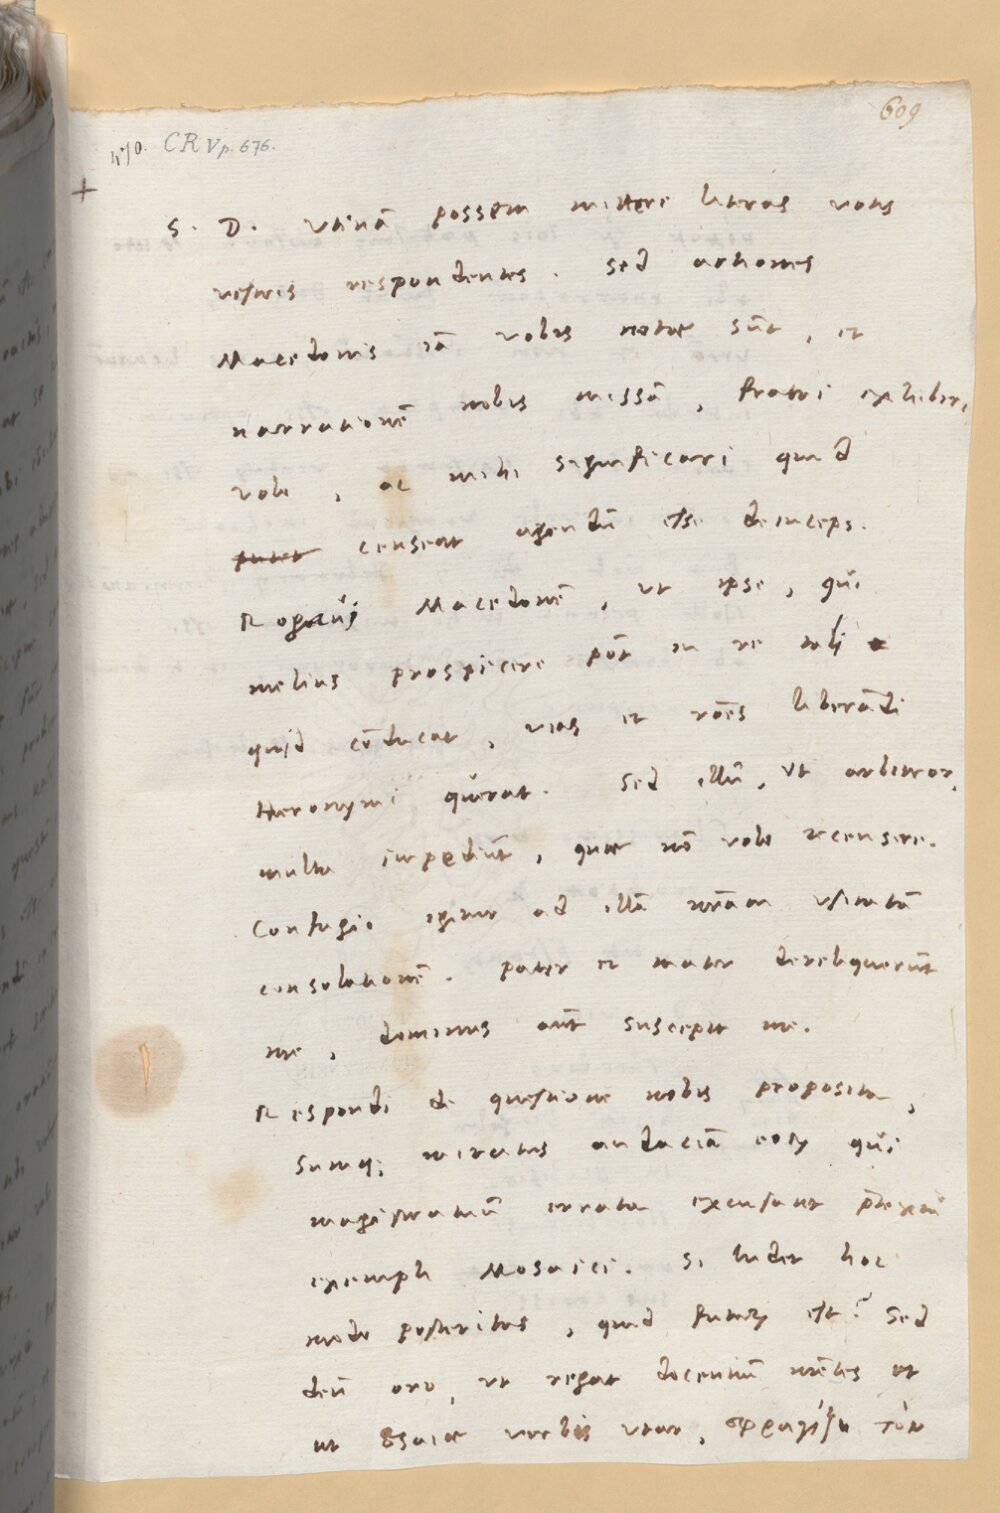 609
470. CR V p. 676.
+
S. D. Utinā possem mittere literas votis
vestris respondentes. Sed actiones
Macedonis iā vobis notae sūt, et
narrationē nobis missā, fratri exhiberi
volo, ac mihi significari quid
putet censeat agendū esse deinceps.
Rogavi Macedonē, ut ipse, qui
melius prospicere pōt in re tali
quid cōducat, vias et rōes liberādi
Hieronymi querat. Sed illū, ut arbitror,
multa impediūt, quae nō volo recensere.
Confugio igitur ad illā nr̄am usitatā
consolationē. pater et mater dereliquerūt
me, dominus aūt suscepit me.
Respondi de questione nobis proposita,
sumq; miratus audaciā eorꝫ qui
magistratuū errata excusant p̄textu
exempli Mosaici. Si ludet hoc
modo posteritas, quid futurꝫ est? Sed
deū oro, ut regat docentiū mētes et
ut Esaiae verbis utar, σφραγίσῃ τὸν